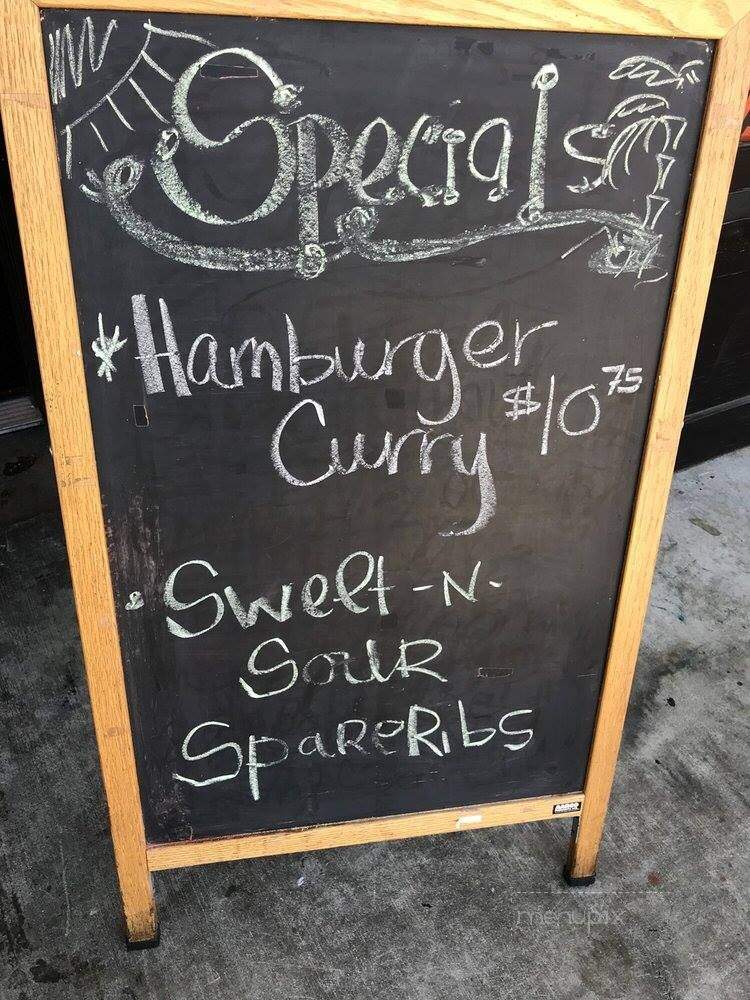 Specials
*Hamburger
Curry $10 75
• Sweet -N-
Sour
SpareRibs
menupix